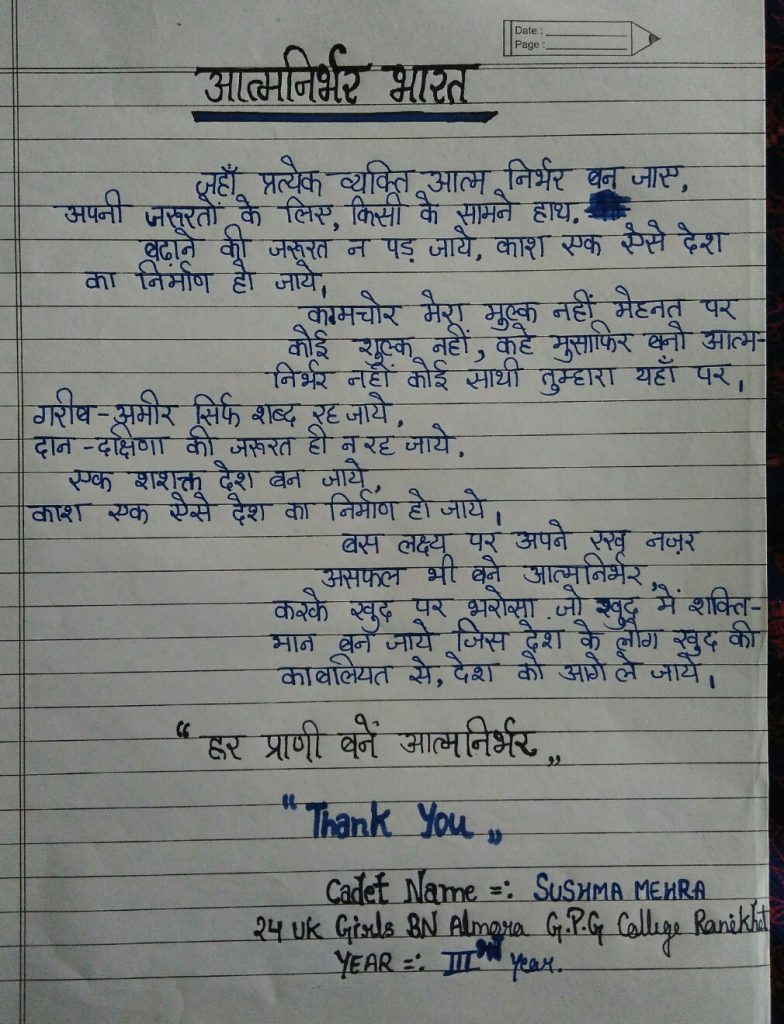 Date :
Page :
आत्मनिर्भर भारत
जहाँ प्रत्येक व्यक्ति आत्म निर्भर बन जाए,
अपनी जरूरतों के लिए, किसी के सामने हाथ.
बढ़ाने की जरूरत न पड़ जाये, काश एक ऐसे देश
का निर्माण हो जाये,
कामचोर मेरा मुल्क नहीं मेहनत पर
कोई शुल्क नहीं, कहे मुसाफिर बनो आत्म-
निर्भर नहीं कोई साथी तुम्हारा यहाँ पर,
गरीब-अमीर सिर्फ शब्द रह जाये,
दान-दक्षिणा की जरूरत ही न रह जाये.
एक शशक्त देश बन जाये,
काश एक ऐसे देश का निर्माण हो जाये,
बस लक्ष्य पर अपने रख नज़र
असफल भी बने आत्मनिर्भर,
करके खुद पर भरोसा जो खुद में शक्ति-
मान बन जाये जिस देश के लोग खुद की
काबलियत से, देश को आगे ले जाये,
“हर प्राणी बनें आत्मनिर्भर„
“Thank You„
Cadet Name =: SUSHMA MEHRA
24 UK Girls BN Almora G.P.G College Ranikhet
YEAR =: III rd Year.